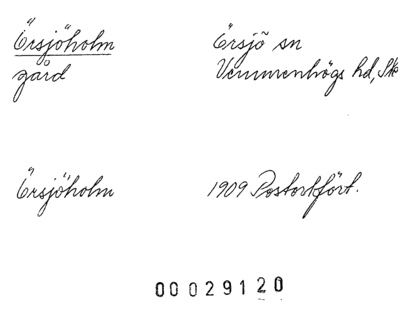 Örsjöholm
gård
Örsjö sn
Vemmenhögs hd, Sk
Örsjöholm
1909 Postortfört.
00029120